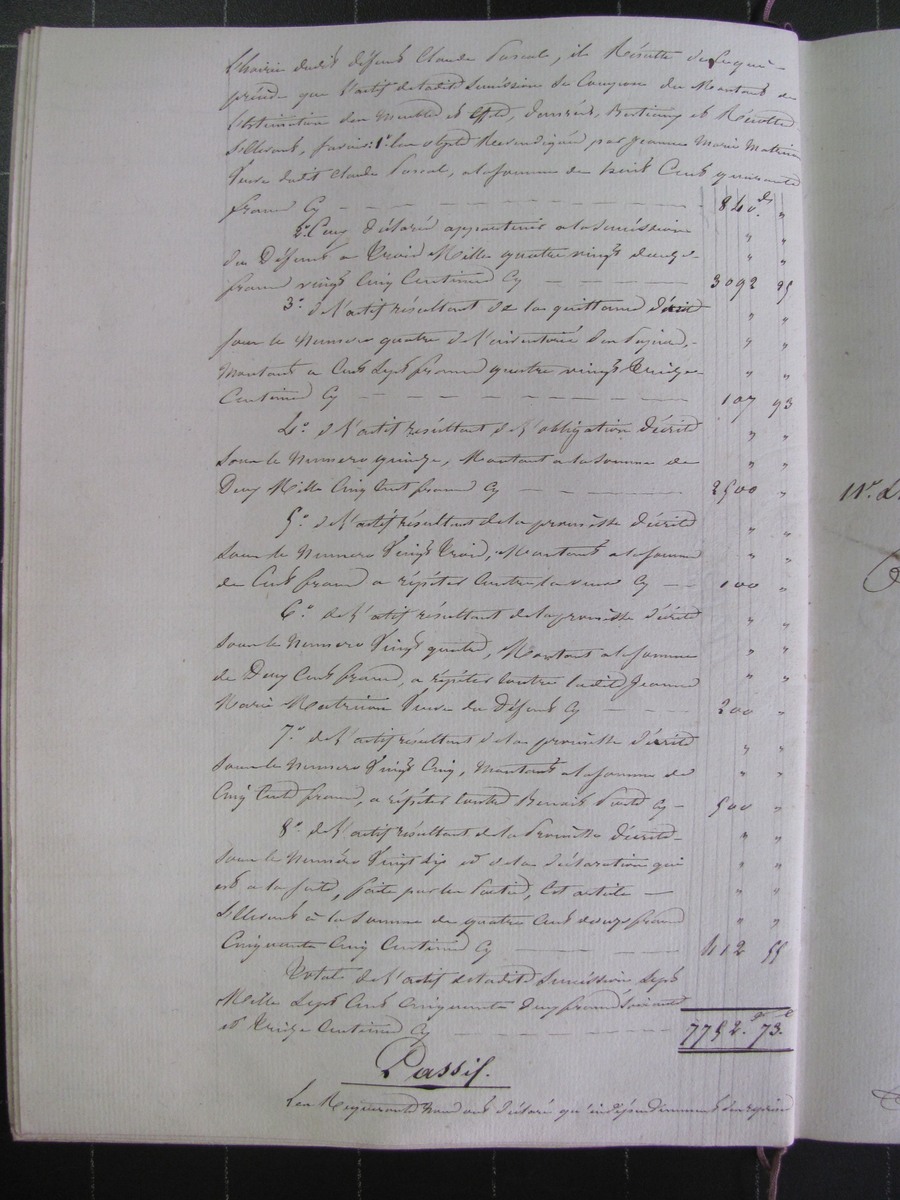 l'hoirie dudit défunt Claude Pascal, il Résulte de ce qui
précède que l'actif de ladite Succession Se Compose du Montant de
l'estimation des Meubles et effets, denrées, Bestiaux et Récoltes
S'élevant, savoir: 1° les objets Revendiqués par Jeanne Marie Mathieu
Veuve dudit Claude Pascal, à la somme de huit Cent quarante
francs Cy 840 "
2° Ceux déclarés appartenir à la Succession
du Défunt à Trois Mille quatre vingt douze
francs vingt Cinq Centimes Cy 3092 25
3° de l'actif résultant de la quittance décrite
sous le Numéro quatre de l'inventaire des Papiers,
Montant à Cent Sept francs quatre vingt Treize
Centimes Cy 107 93
4° de l'actif résultant de l'obligation décrite
Sous le Numéro quinze, Montant à la Somme de
Deux Mille Cinq Cent francs Cy 2500 "
5° de l'actif résultant de la promesse décrite
Sous le Numéro Vingt Trois, Montant à la somme
de Cent francs à répéter Contre la veuve Cy 100 "
6° de l'actif résultant de la promesse décrite
Sous le Numéro Vingt quatre, Montant à la somme
de Deux Cent francs, à répéter Contre ladite Jeanne
Marie Veuve du Défunt Cy 200 "
7° de l'actif résultant de la promesse décrite
Sous le Numéro Vingt Cinq, Montant à la somme de
Cinq Cent francs, à répéter Contre Benoit Cy 500 "
8° de l'actif résultant de la Promesse décrite
Sous le Numéro Vingt Six et de la déclaration qui
est à la suite, faite par les Parties, Cet article
S'élevant à la Somme de quatre Cent douze francs
Cinquante Cinq Centimes Cy 412 55
Total de l'actif de ladite Succession Sept
Mille Sept Cent Cinquante Deux francs Soixante
et Treize Centimes Cy 7752. 73.
Passif.
Les Requérants Nous ont déclaré qu'indépendamment des reprises